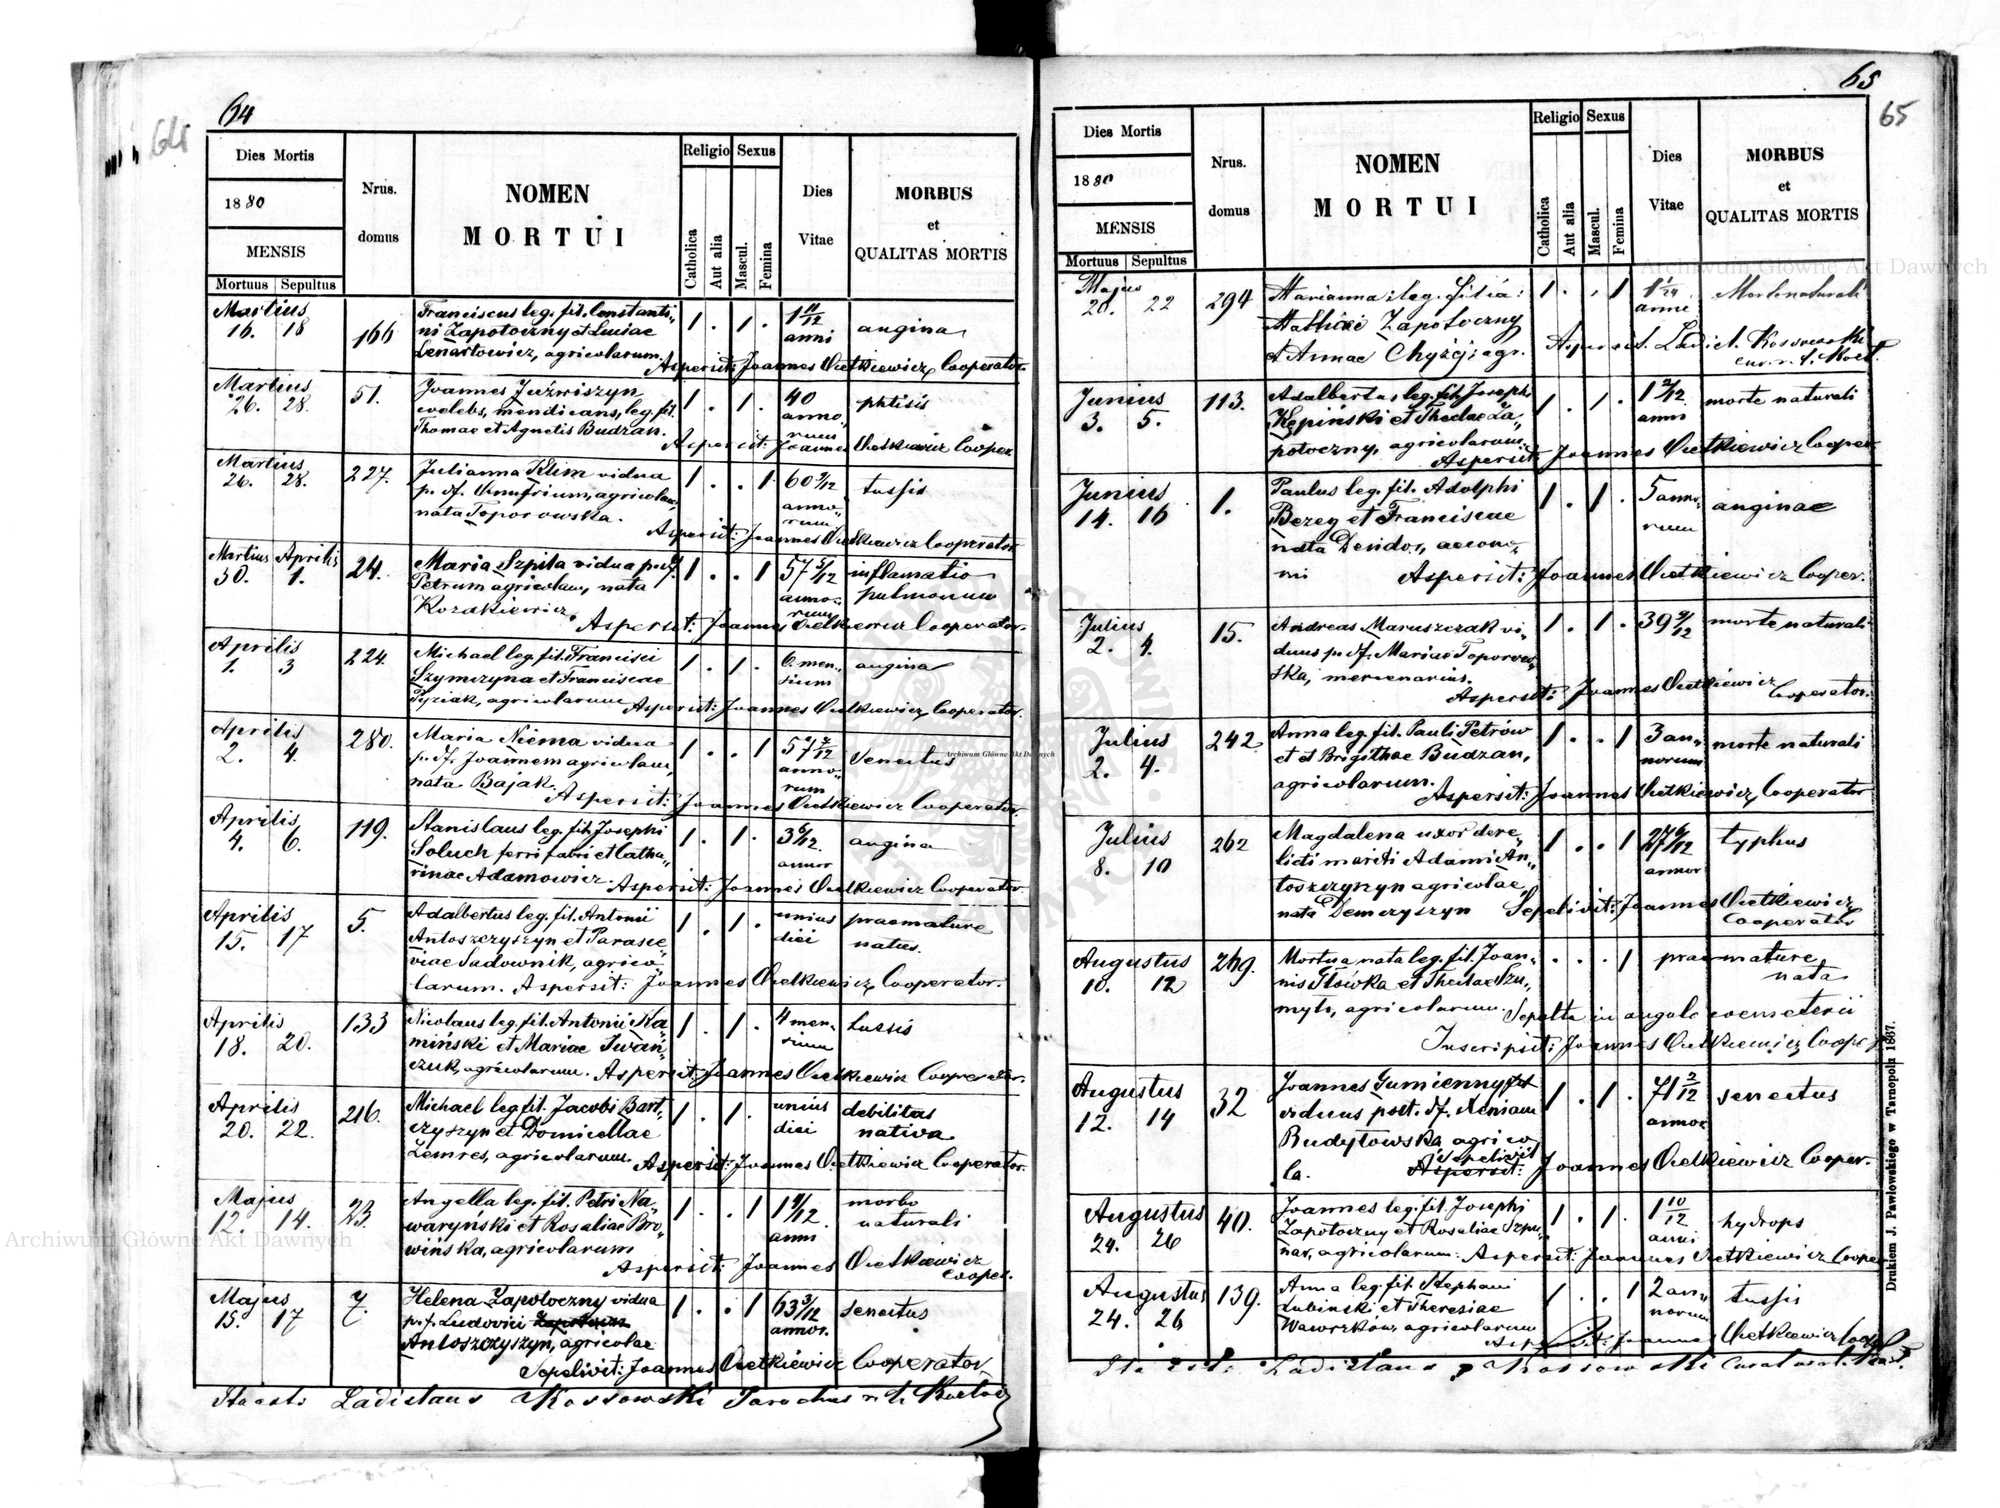 64
64
Dies Mortis
1880
MENSIS
Mortuus Sepultus
Nrus. domus
NOMEN
MORTUI
Religio
Catholica
Aut alia
Sexus
Mascul.
Femina
Dies Vitae
MORBUS
et
QUALITAS MORTIS
Martius
16. 18
166
Franciscus leg. fil. Constanti-
ni Zapotoczny et Luciae
Lenartowicz, agricolarum.
1 . 1 .
1 11/12
anni
angina
Aspersit: Joannes Oretkiewicz Cooperator.
Martius
26. 28.
51.
Joannes Juźwiszyn
coelebs, mendicans, leg. fil.
Thomae et Agnetis Budzan.
1 . 1 .
40
anno-
rum
phtisis
Aspersit: Joannes Oretkiewicz Cooper
Martius
26. 28.
227.
Julianna Klim vidua
p. df. Onufrium, agricolam,
nata Toporowska.
1 . . 1
60 9/12
anno-
rum
tussis
Aspersit: Joannes Oretkiewicz Cooperator
Martius Aprilis
30. 1.
24.
Maria Szpila vidua p. df.
Petrum agricolam, nata
Kozakiewicz.
1 . . 1
57 5/12
anno-
rum
inflamatio
pulmonum
Aspersit: Joannes Oretkiewicz Cooperator.
Aprilis
1. 3
224.
Michael leg. fil. Francisci
Szymczyna et Franciscae
Pyziak, agricolarum
1 . 1 .
6. men-
sium
angina
Aspersit: Joannes Oretkiewicz Cooperator.
Aprilis
2. 4.
280.
Maria Niema vidua
p. df. Joannem agricolam,
nata Bajak.
1 . . 1
57 7/12
anno-
rum
senectus
Aspersit: Joannes Oretkiewicz Cooperator.
Aprilis
4. 6.
119.
Stanislaus leg. fil. Josephi
Soluch ferri fabri et Catha-
rinae Adamowicz.
1 . 1 .
3 6/12
annor
angina
Aspersit: Joannes Oretkiewicz Cooperator.
Aprilis
15. 17
5.
Adalbertus leg. fil. Antonii
Antoszczyszyn et Parasce-
viae Sadownik, agrico-
larum. Aspersit: Joannes Oretkiewicz Cooperator.
1 . 1 .
unius
diei
praemature
natus.
Aprilis
18. 20.
133
Nicolaus leg. fil. Antonii Ka-
miński et Mariae Iwań-
czuk, agricolarum. Aspersit: Joannes Oretkiewicz Cooperator.
1 . 1 .
4 men-
sium
tussis
Aprilis
20. 22.
216.
Michael leg. fil. Jacobi Bart-
czyszyn et Domicellae
Zemres, agricolarum.
1 . 1 .
unius
diei
debilitas
nativa
Aspersit: Joannes Oretkiewicz Cooperator.
Majus
12. 14.
23.
Angella leg. fil. Petri Na-
waryński et Rosaliae Bro-
wińska, agricolarum
1 . . 1
1 9/12
anni
morbo
naturali
Aspersit: Joannes Oretkiewicz
Cooper.
Majus
15. 17
7.
Helena Zapotoczny vidua
p. f. Ludovici
Antoszczyszyn, agricolae
1 . . 1
63 3/12
annor.
senectus
Sepelivit: Joannes Oretkiewicz Cooperator
Ladislaus Kossowski Parochus
65
65
Dies Mortis
1880
MENSIS
Mortuus Sepultus
Nrus. domus
NOMEN
MORTUI
Religio
Catholica
Aut alia
Sexus
Mascul.
Femina
Dies Vitae
MORBUS
et
QUALITAS MORTIS
Majus
20. 22
294
Marianna: leg. filia:
Mathiae Zapotoczny
et Annae Chyży: agr.
1 . . 1
anni
Morte naturali
Aspersit. Ladisl. Kossowski
Junius
3. 5.
113.
Adalbertus leg. fil. Josephi
Kępiński et Theclae Za-
potoczny, agricolarum.
1 . 1 .
1 2/12
anni
morte naturali
Aspersit: Joannes Oretkiewicz Cooper
Junius
14. 16
1.
Paulus leg. fil. Adolphi
Berey et Franciscae
nata Dendor, aecono-
mi
1 . 1 .
5 anno-
rum
anginae
Aspersit: Joannes Oretkiewicz Cooper.
Julius
2. 4.
15.
Andreas Maruszczak vi-
duus p. df. Mariae Toporow-
ska, mercenarius.
1 . 1 .
39 9/12
morte naturali
Aspersit: Joannes Oretkiewicz
Cooperator.
Julius
2. 4.
242.
Anna leg. fil. Pauli Petrów
et et Brigithae Budzan,
agricolarum.
1 . . 1
3 an-
norum
morte naturali
Aspersit: Joannes Oretkiewicz Cooperator
Julius
8. 10
262
Magdalena uxor dere-
licti mariti Adami An-
toszczyzyn agricolae,
nata Demczyszyn
1 . . 1
27 6/12
annor
typhus
Sepelivit: Joannes Oretkiewicz
Cooperator
Augustus
10. 12
249.
Mortua nata leg. fil. Joan-
nis Główka et Theclae Szu-
myto, agricolarum.
. . . 1
praemature
nata
Sepulta in angulo coemeterii
Inscripsit: Joannes Oretkiewicz Cooper
Augustus
12. 14
32
Joannes Gumienny
viduus post. df. Xeniam
Budytowska agrico-
la.
1 . 1 .
71 2/12
annor
senectus
Sepelivit
Aspersit: Joannes Oretkiewicz Cooper.
Augustus
24. 26
40.
Joannes leg. fil. Josephi
Zapotoczny et Rosaliae Szpu-
nar, agricolarum. Aspersit: Joannes Oretkiewicz Cooper
1 . 1 .
1 10/12
anni
hydrops
Augustus
24. 26
139.
Anna leg. fil. Stephani
Lubinski et Theresiae
Wawrzków, agricolarum
1 . . 1
2 an-
norum
tussis
Aspersit: Joannes Oretkiewicz Cooper
Ladislaus Kossowski
Drukiem J. Pawłowskiego w Tarnopolu 1867.
Archiwum Główne Akt Dawnych
Archiwum Główne Akt Dawnych
Archiwum Główne Akt Dawnych